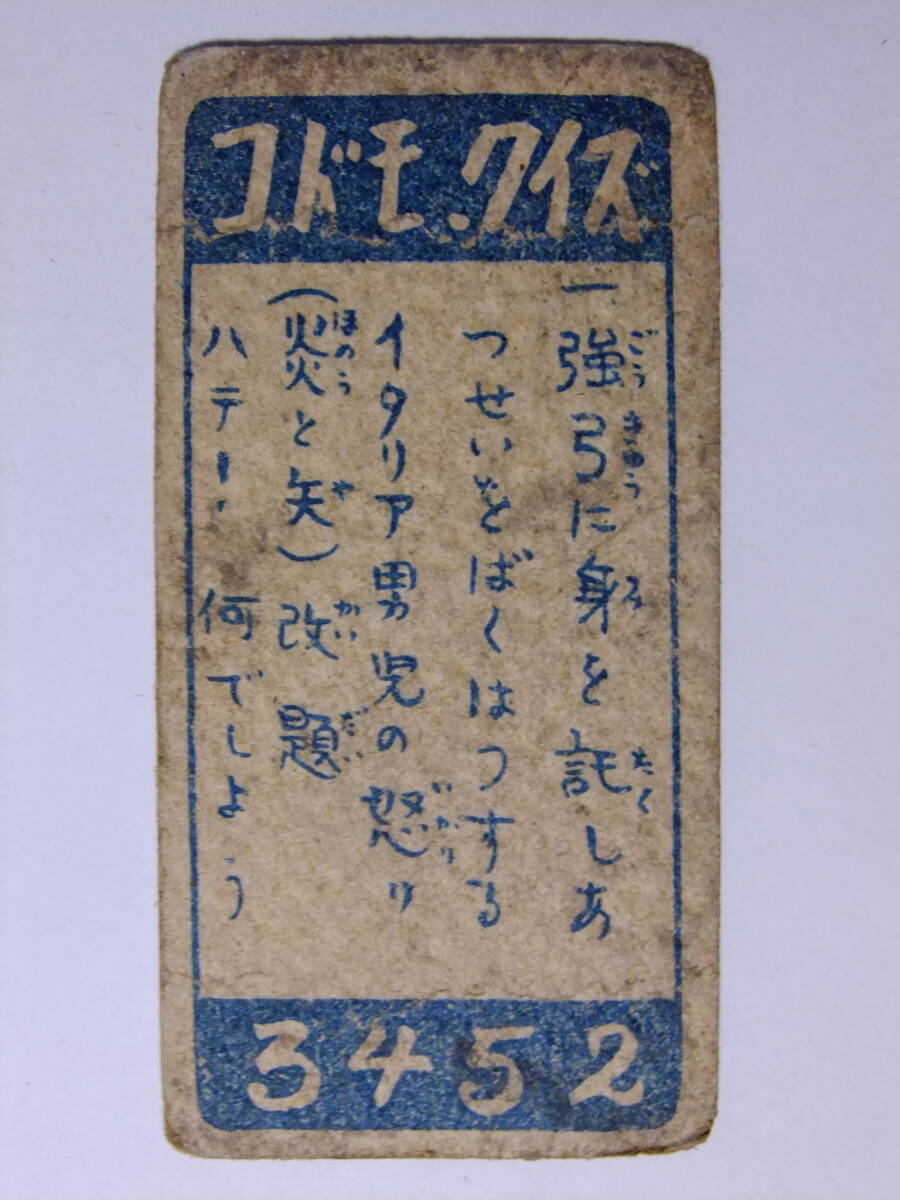 コドモ.クイズ
一強弓に身を託しあ
つせいをばくはつする
イタリア男児の怒り
(焰と矢)改題
ハテー・何でしよう
3452